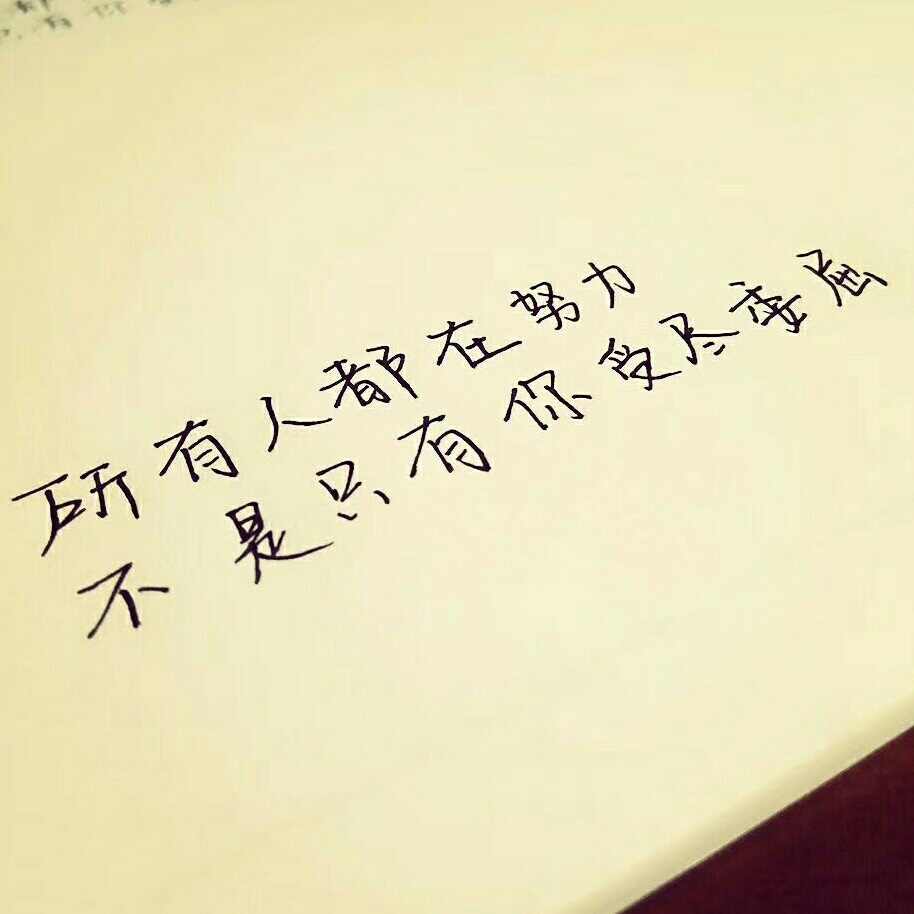 所有人都在努力
不是只有你受尽委屈